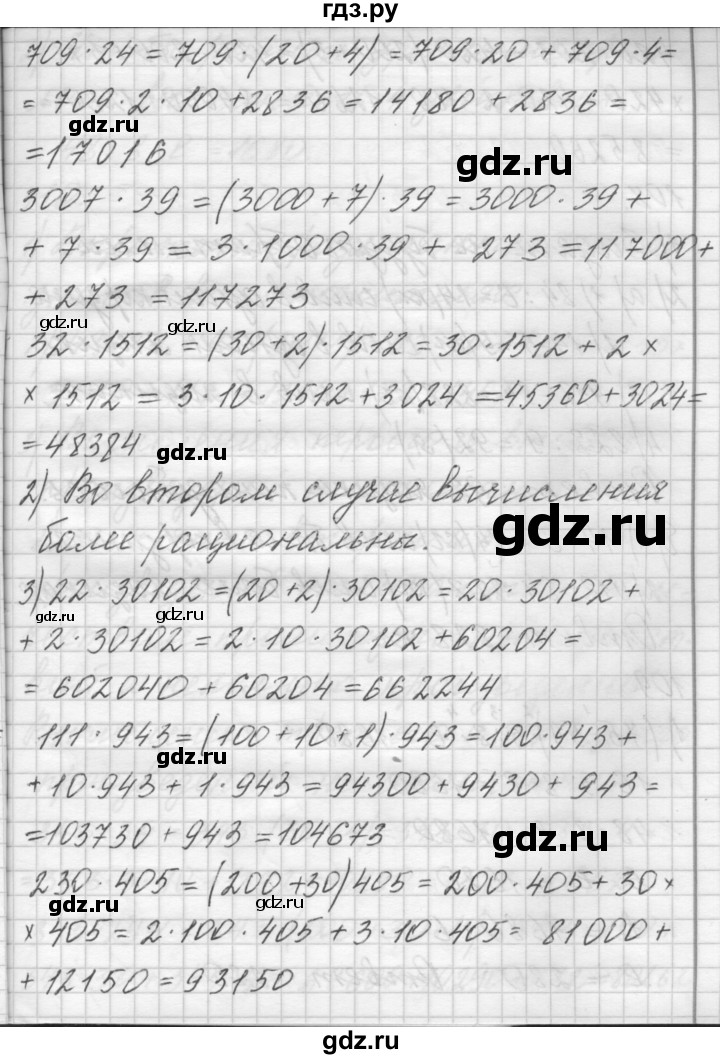 гдз.ру
709 · 24 = 709 · (20 + 4) = 709 · 20 + 709 · 4 =
= 709 · 2 · 10 + 2836 = 14180 + 2836 =
gdz.ru
= 17016
gdz.ru
3007 · 39 = (3000 + 7) · 39 = 3000 · 39 +
+ 7 · 39 = 3 · 1000 · 39 + 273 = 117000 +
+ 273 = 117273
gdz.ru gdz.ru
32 · 1512 = (30 + 2) · 1512 = 30 · 1512 + 2 ×
× 1512 = 3 · 10 · 1512 + 3024 = 45360 + 3024 =
= 48384
gdz.ru
2) Во втором случае вычисления
gdz.ru
более рациональны.
3) 22 · 30102 = (20 + 2) · 30102 = 20 · 30102 +
gdz.ru gdz.ru
+ 2 · 30102 = 2 · 10 · 30102 + 60204 =
= 602040 + 60204 = 662244
111 · 943 = (100 + 10 + 1) · 943 = 100 · 943 +
gdz.ru
+ 10 · 943 + 1 · 943 = 94300 + 9430 + 943 =
= 103730 + 943 = 104673
gdz.ru
230 · 405 = (200 + 30) 405 = 200 · 405 + 30 ×
gdz.ru gdz.ru
× 405 = 2 · 100 · 405 + 3 · 10 · 405 = 81000 +
+ 12150 = 93150
gdz.ru
gdz.ru